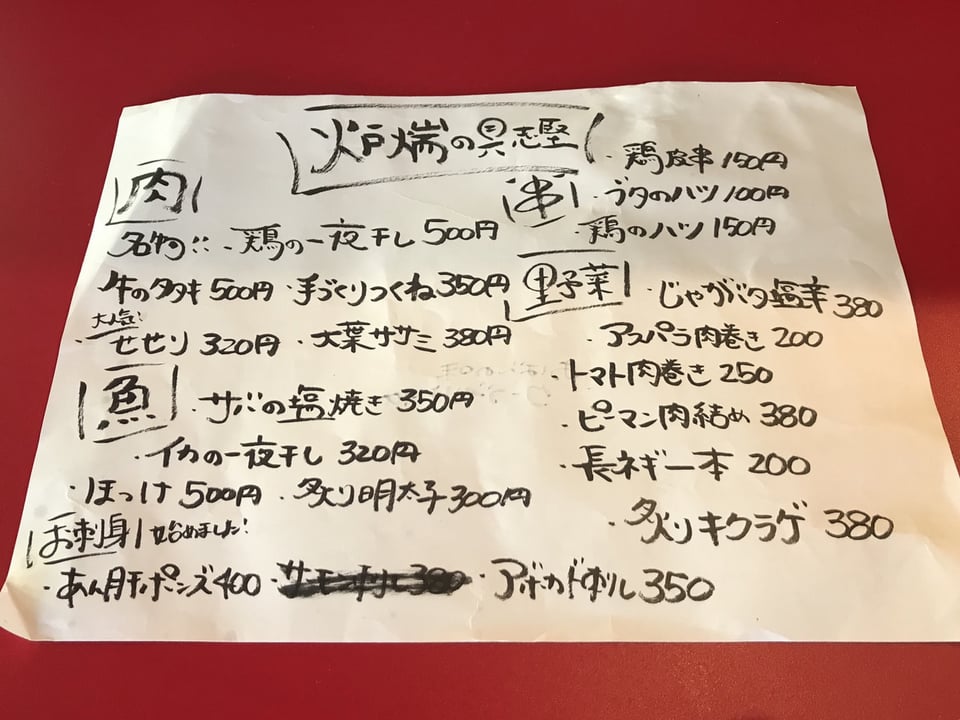 炉端の具志堅
肉
名物!!・鶏の一夜干し 500円
牛のタタキ 500円 ・手づくりつくね 350円
大人気!
・せせり 320円 ・大葉ササミ 380円
魚
・サバの塩焼き 350円
・イカの一夜干し 320円
・ほっけ 500円 ・炙り明太子 300円
お刺身 始めました!
・あん肝ポンズ 400 ・サーモン刺し 380 ・アボカド刺し 350
串
・鶏皮串 150円
・ブタのハツ 100円
・鶏のハツ 150円
野菜
・じゃがバタ塩辛 380
・アスパラ肉巻き 200
・トマト肉巻き 250
・ピーマン肉詰め 380
・長ネギ一本 200
・炙りキクラゲ 380